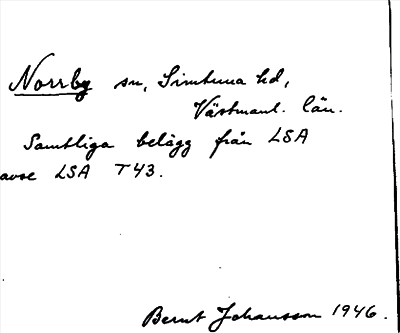 Norrby sn, Simtuna hd,
Västmanl. län.
Samtliga belägg från LSA
avse LSA T43.
Bernt Johansson 1946.